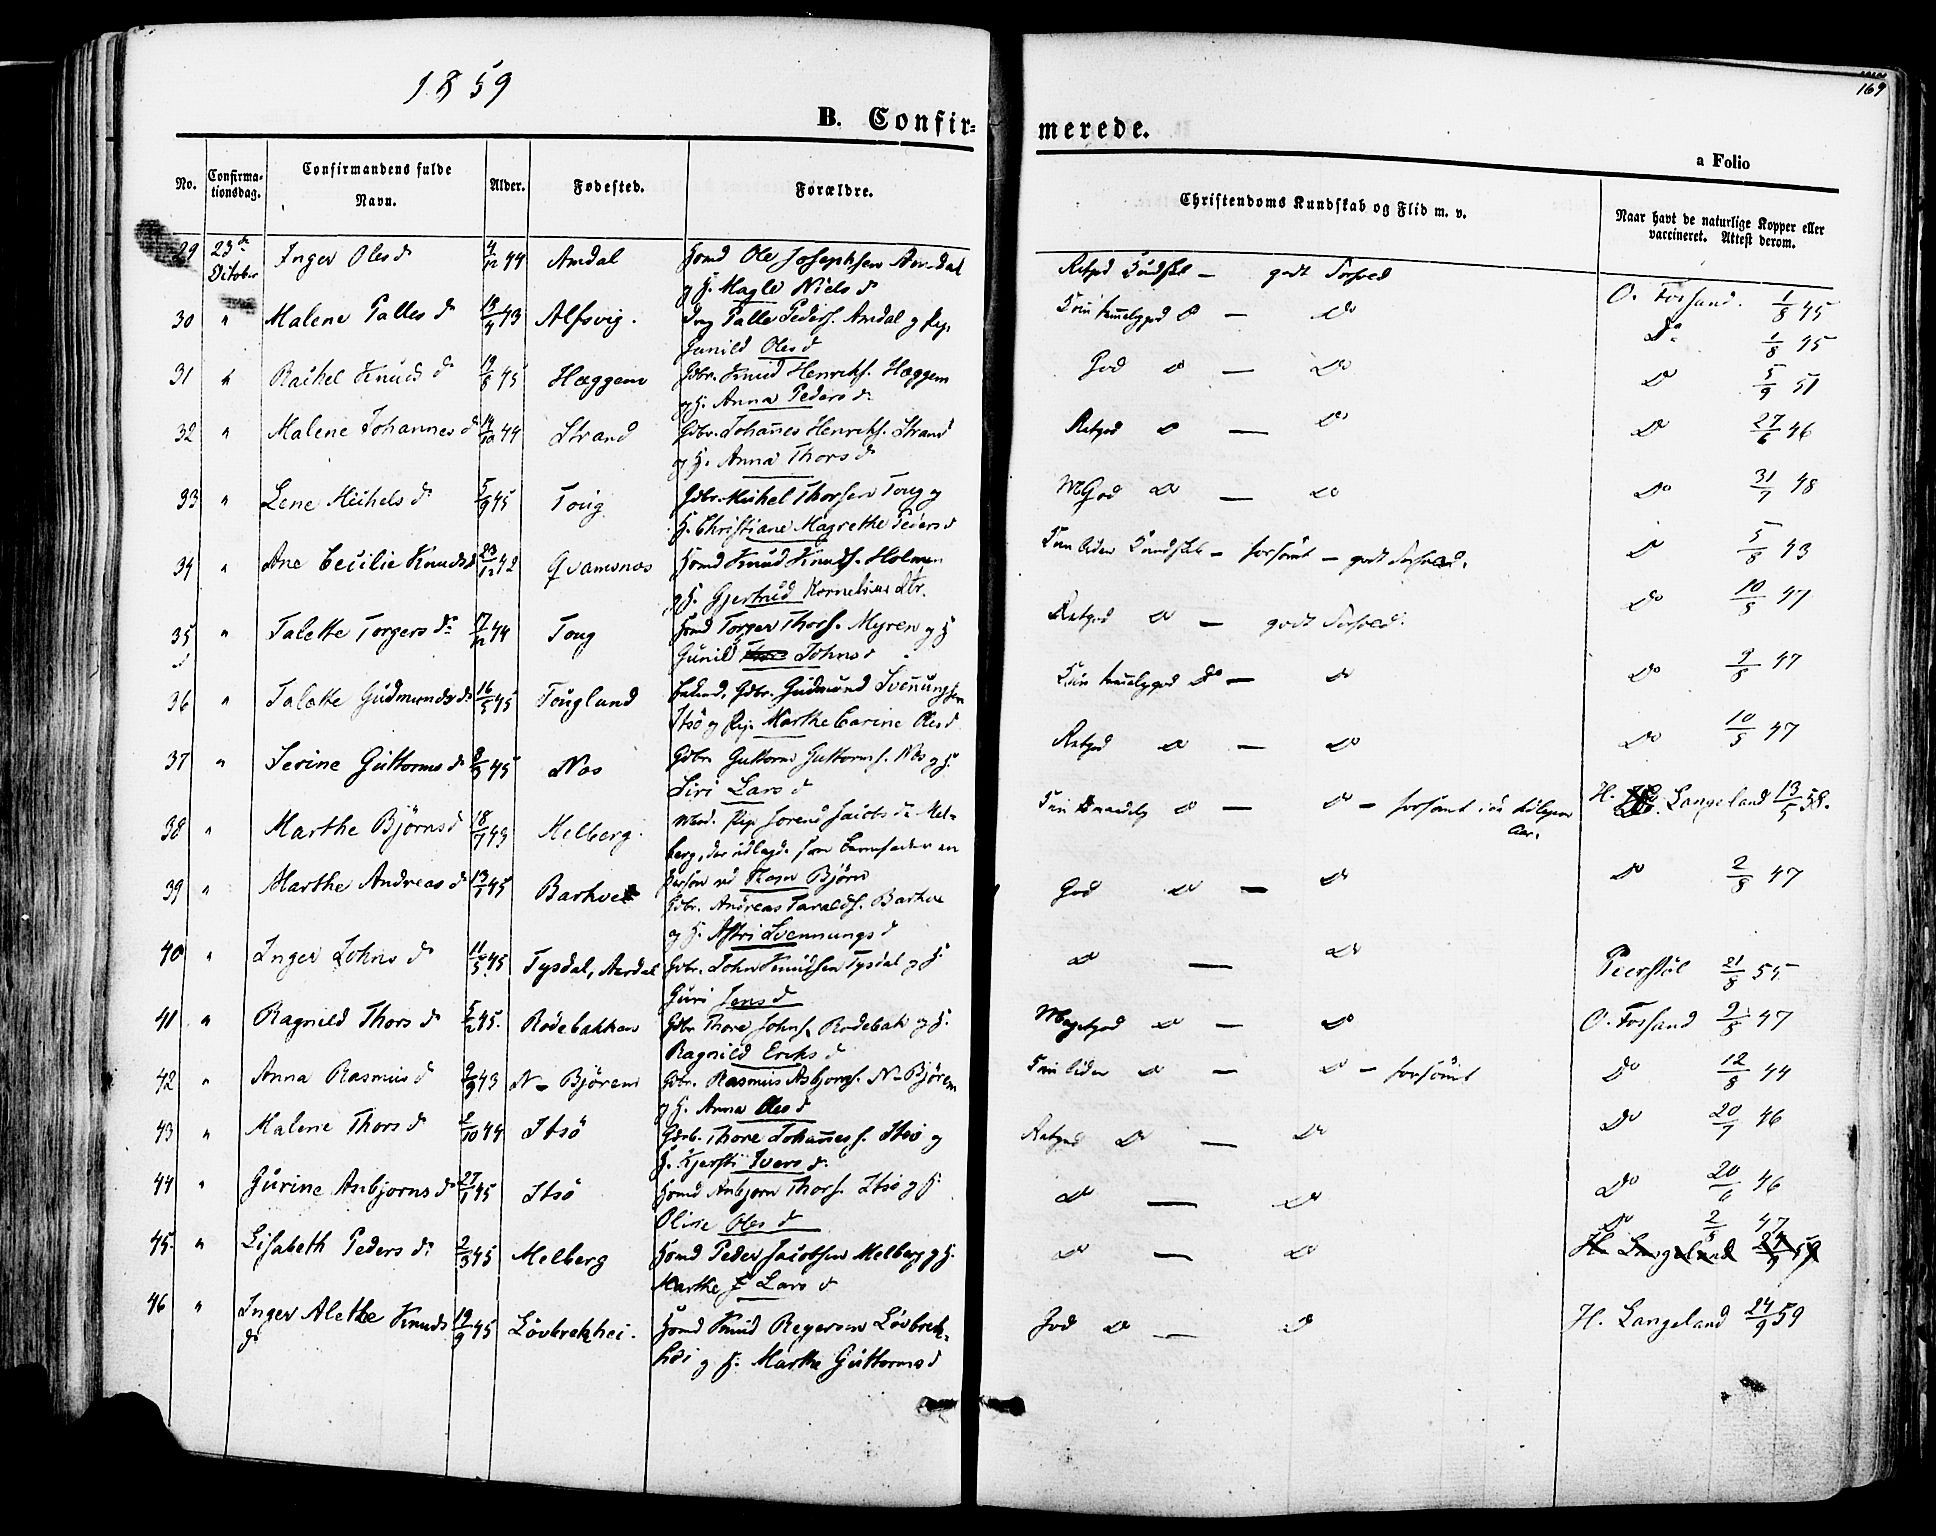 1859
169
B. Confir-
merede.
a Folio
No.
Confirma-
tionsdag.
Confirmandens fulde
Navn.
Alder.
Fødested.
Forældre.
Christendoms Kundskab og Flid m. v.
Naar havt de naturlige Kopper eller
vaccineret. Attest derom.
29 23de October Inger Olesd 4/12 44 Amdal Hsmd Ole Josephsen Amdal
og H. Magle Nielsd
Retgod Kundsk. — godt Forhold O. Forsand. 1/8 45
30 " Malene Pallesd 19/4 43 Alfsvig. Palle Peders. Amdal og Pige
Gunild Olesd
temmelig god D — Do Do 1/8 45
31 " Rachel Knudsd 19/8 45 Hæggem Gdbr. Knud Henriks. Hæggem
og H. Anna Pedersd
God D — Do D 5/9 51
32 " Malene Johannesd 14/10 44 Strand Gdbr. Johannes Henriks. Strand
og H. Anna Thorsd
Retgod D — Do D 27/6 46
33 " Lene Michelsd 5/9 45 Toug Gdbr. Michel Thorsen Toug og
H. Christiane Magrethe Pedersd
MGod D — D Do 31/7 48
34 " Ane Cecilie Knudsd 23/12 42 Qvamsnæs Hsmd Knud Knuds. Holmen
og H. Gjertrud Kornelius Dtr.
Kun liden Kundsk. — forsømt — godt Forhold. D 5/8 43
35 " Talette Torgersd 17/12 44 Toug Hsmd Torger Thors. Myren og H
Gunild Johnsd
Retgod D — godt Forhold. Do 10/5 47
36 " Talette Gudmundsd 16/5 45 Tougland Gdbr. Gudmund Svenungsen
Itsø og Pige Marthe Carine Olesd
Kun temmelig god Do — D Do 9/5 47
37 " Serine Guttormsd 8/3 45 Nos Gdbr Guttorm Guttorms. Nos og H
Siri Larsd
Retgod D — D Do 10/5 47
38 " Marthe Bjørnsd 18/7 43 Melberg. Pige Jacobsd Mel-
berg, der udlagde som Barnefader en
Person ved Navn Bjørn
Kun D — D — forsømt
Aar.
H. Langeland 13/5 58.
39 " Marthe Andreasd 13/1 45 Barkved Gdbr. Andreas Taralds. Barkve
og H. Astri Svennungsd
God D — D Do 2/8 47
40 " Inger Johnsd 11/5 45 Tysdal, Aardal Gdbr. John Knudsen Tysdal og H
Guri Jensd
D — D 21/8 55
41 " Ragnild Thorsd 5/2 45. Rødebakken Gdbr Thore Johns. Rødebak og H.
Ragnild Eriksd
Megetgod D — D O. Forsand 2/5 47
42 " Anna Rasmusd 9/9 43 N. Bjøreim Gdbr. Rasmus Asbjørns. N. Bjøreim
og H. Anna Olesd
Kun liden D — D — forsømt Do 12/8 44
43 " Malene Thorsd 2/10 44 Itsø Gdbr. Thore Johanness. Itsø og
H. Kjersti Iversd
Retgod D — D Do 20/7 46
44 " Gurine Anbjørnsd 27/1 45 Itsø Hsmd Anbjørn Thors. Itsø og H.
Oline Olesd
D — D Do 20/6 46
45. " Lisabeth Pedersd 2/3 45 Melberg Hsmd Peder Jacobsen Melberg og H.
Marthe Larsd
D — D Do 2/5 47
H. Langeland
46 " Inger Alethe Knuds
d 19/9 45 Løvbrekhei. Hsmd Knud Regersen Løvbrek-
hei og H. Marthe Guttormsd
God D — D H. Langeland 24/9 59